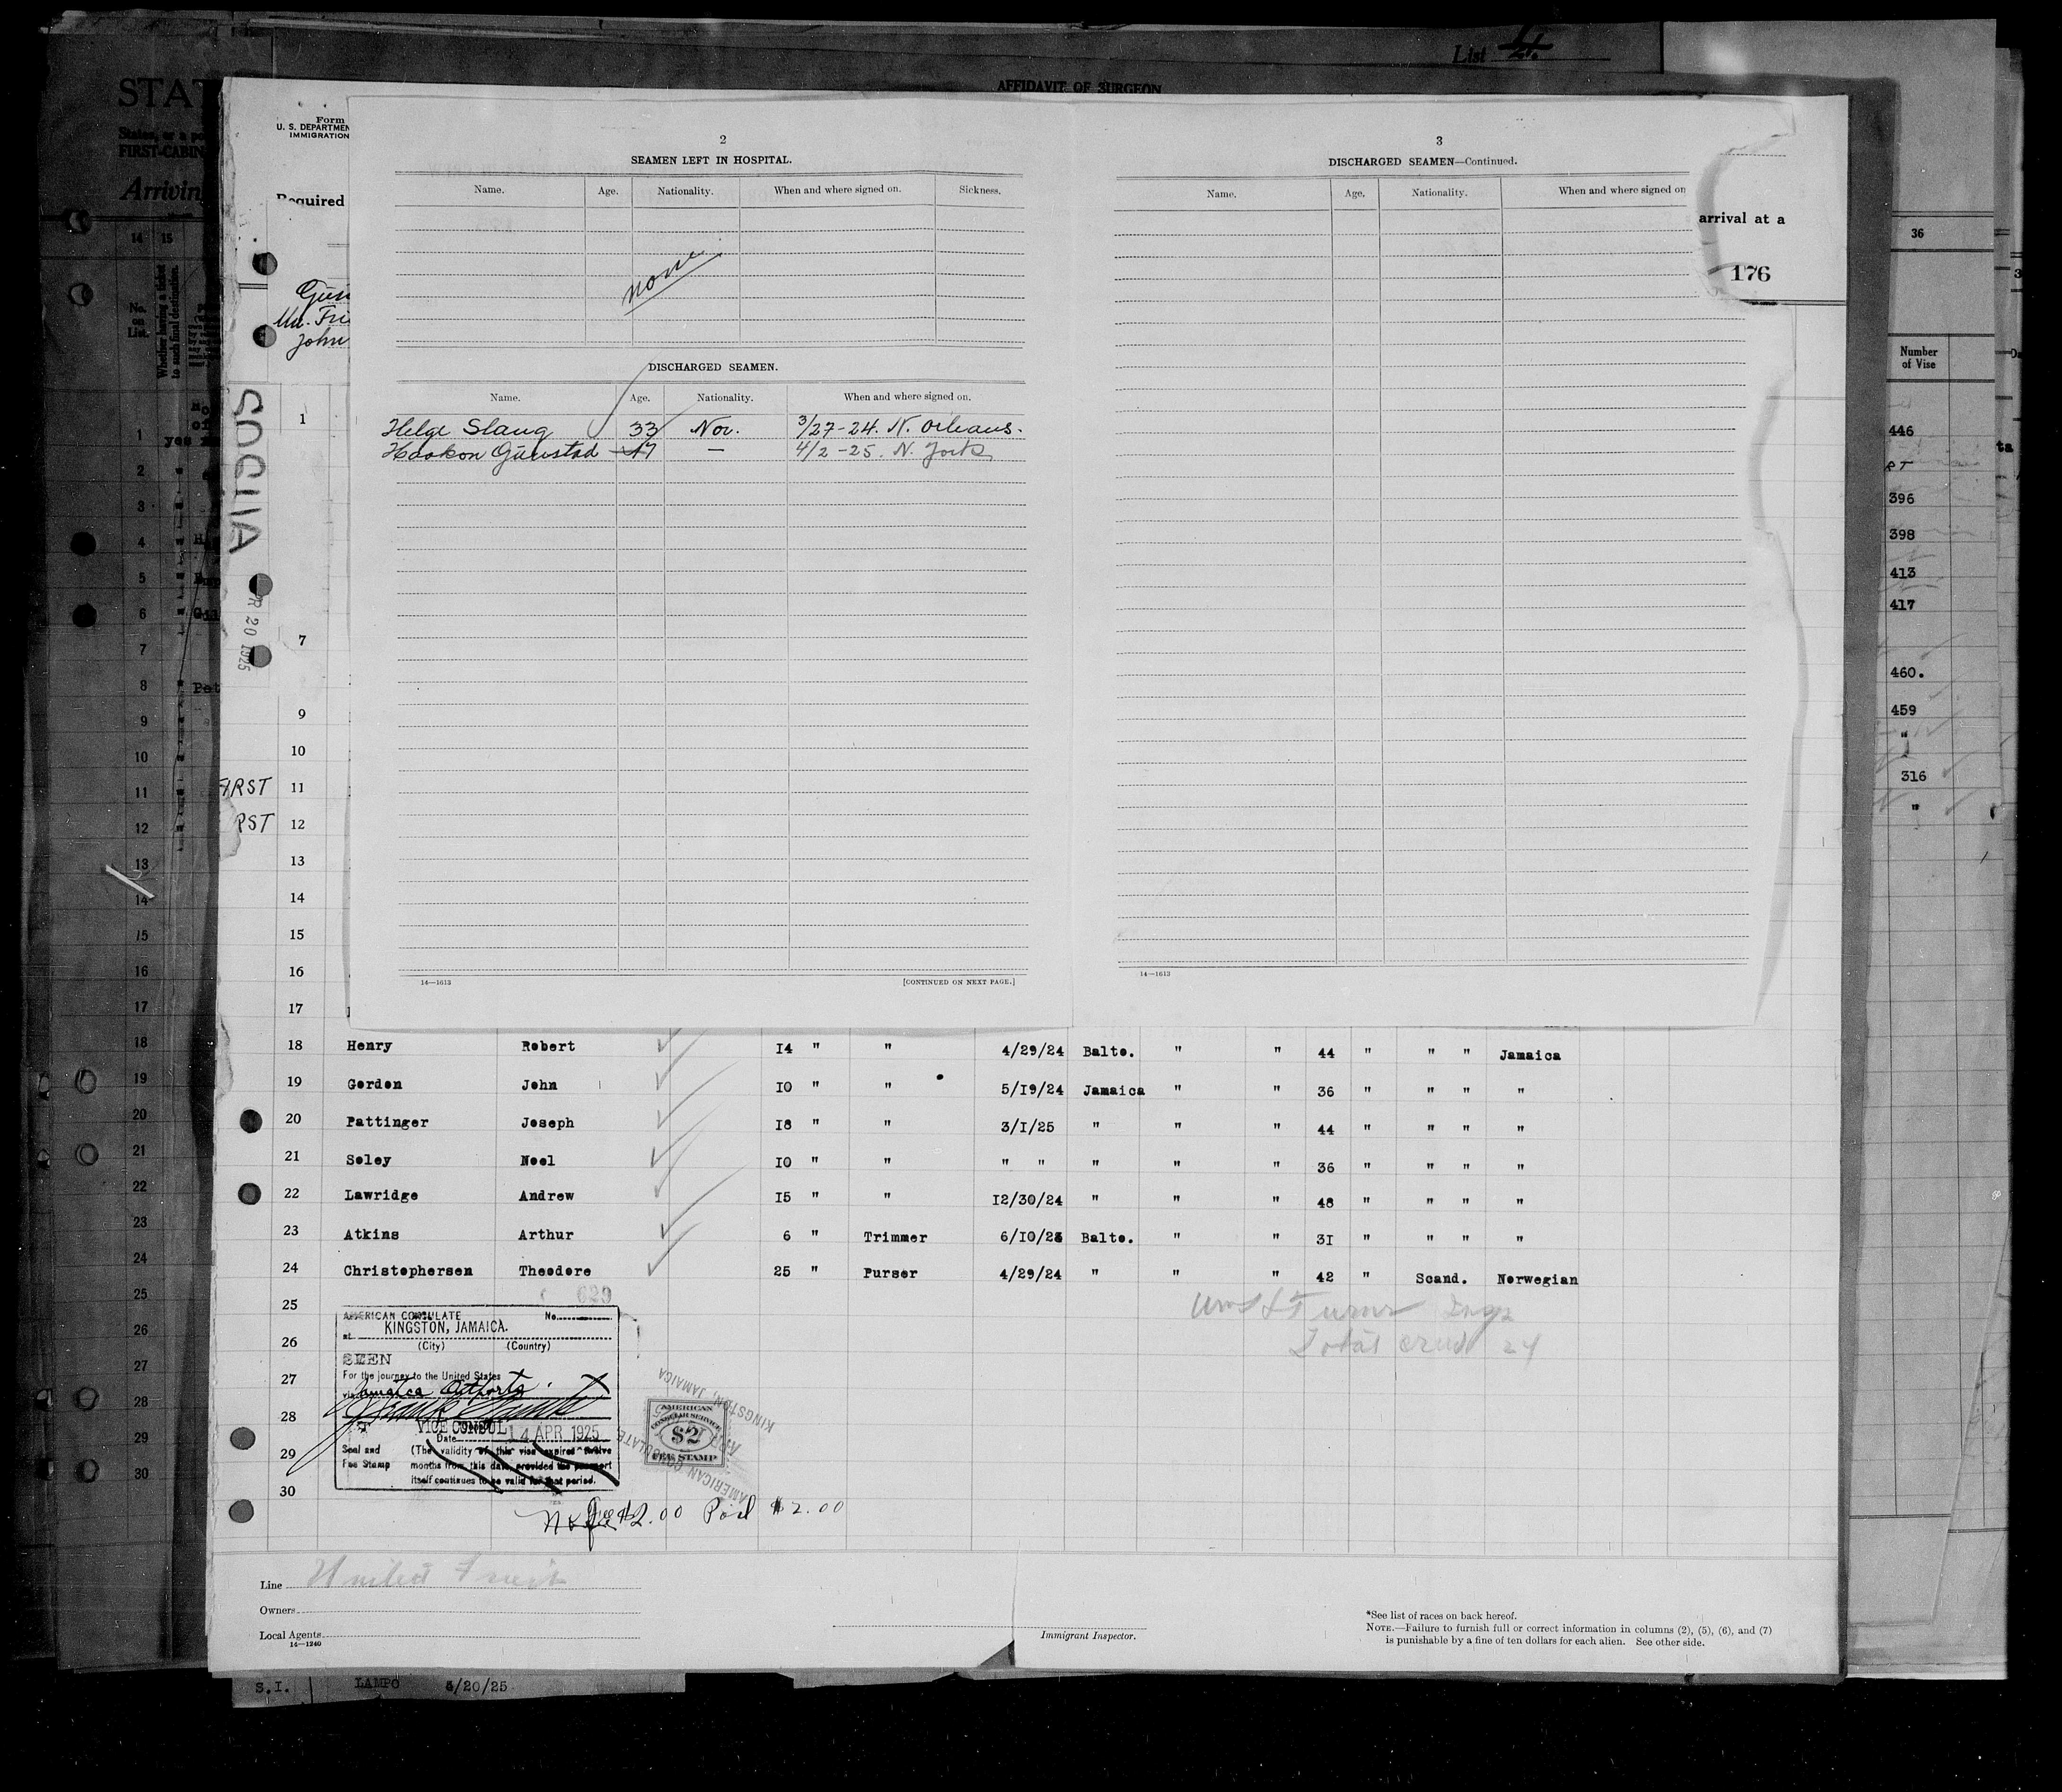 List 4
AFFIDAVIT OF SURGEON
STAT
FIRST-CABIN
Arriving
Form
U. S. DEPARTMEN
IMMIGRATION
Required
arrival at a
176
2
SEAMEN LEFT IN HOSPITAL.
Name. Age. Nationality. When and where signed on. Sickness.
none
DISCHARGED SEAMEN.
Name. Age. Nationality. When and where signed on.
Helge Slang 33 Nor. 3/27-24. N. Orleans.
Haakon Gunstad 17 — 4/2-25. N. York
14—1613 [CONTINUED ON NEXT PAGE.]
3
DISCHARGED SEAMEN—Continued.
Name. Age. Nationality. When and where signed on
14—1613
14 15
No. on List.
Whether having a ticket to such final destination.
yes
John
R 20 1925
FIRST
36
Number of Vise
446
396
398
413
417
460.
459
"
316
"
1
7
9
10
11
12
13
14
15
16
17
18 Henry Robert 14 " " 4/29/24 Balto. " " 44 " " " Jamaica
19 Gordon John 10 " " 5/19/24 Jamaica " " 36 " " " "
20 Pattinger Joseph 18 " " 3/1/25 " " " 44 " " " "
21 Soley Noel 10 " " " " " " " 36 " " " "
22 Lawridge Andrew 15 " " 12/30/24 " " " 48 " " " "
23 Atkins Arthur 6 " Trimmer 6/10/23 Balto. " " 31 " " " "
24 Christophersen Theodore 25 " Purser 4/29/24 " " " 42 " Scand. Norwegian
25
26
27
28
29
30
629
Total crew 24
AMERICAN CONSULATE No.
at KINGSTON, JAMAICA.
(City) (Country)
SEEN
For the journey to the United States
via Jamaica Outports.
VICE CONSUL
Date 14 APR 1925
Seal and Fee Stamp
(The validity of this visa expires twelve
months from this date, provided the passport
itself continues to be valid for that period.
AMERICAN
CONSULAR SERVICE
$2
FEE STAMP
AMERICAN CONSULATE
KINGSTON, JAMAICA
Fee $2.00 Paid $2.00
Line United Fruit
Owners
Local Agents
14—1240
Immigrant Inspector.
*See list of races on back hereof.
NOTE.—Failure to furnish full or correct information in columns (2), (5), (6), and (7)
is punishable by a fine of ten dollars for each alien. See other side.
S.I. LAMPO 3/20/25